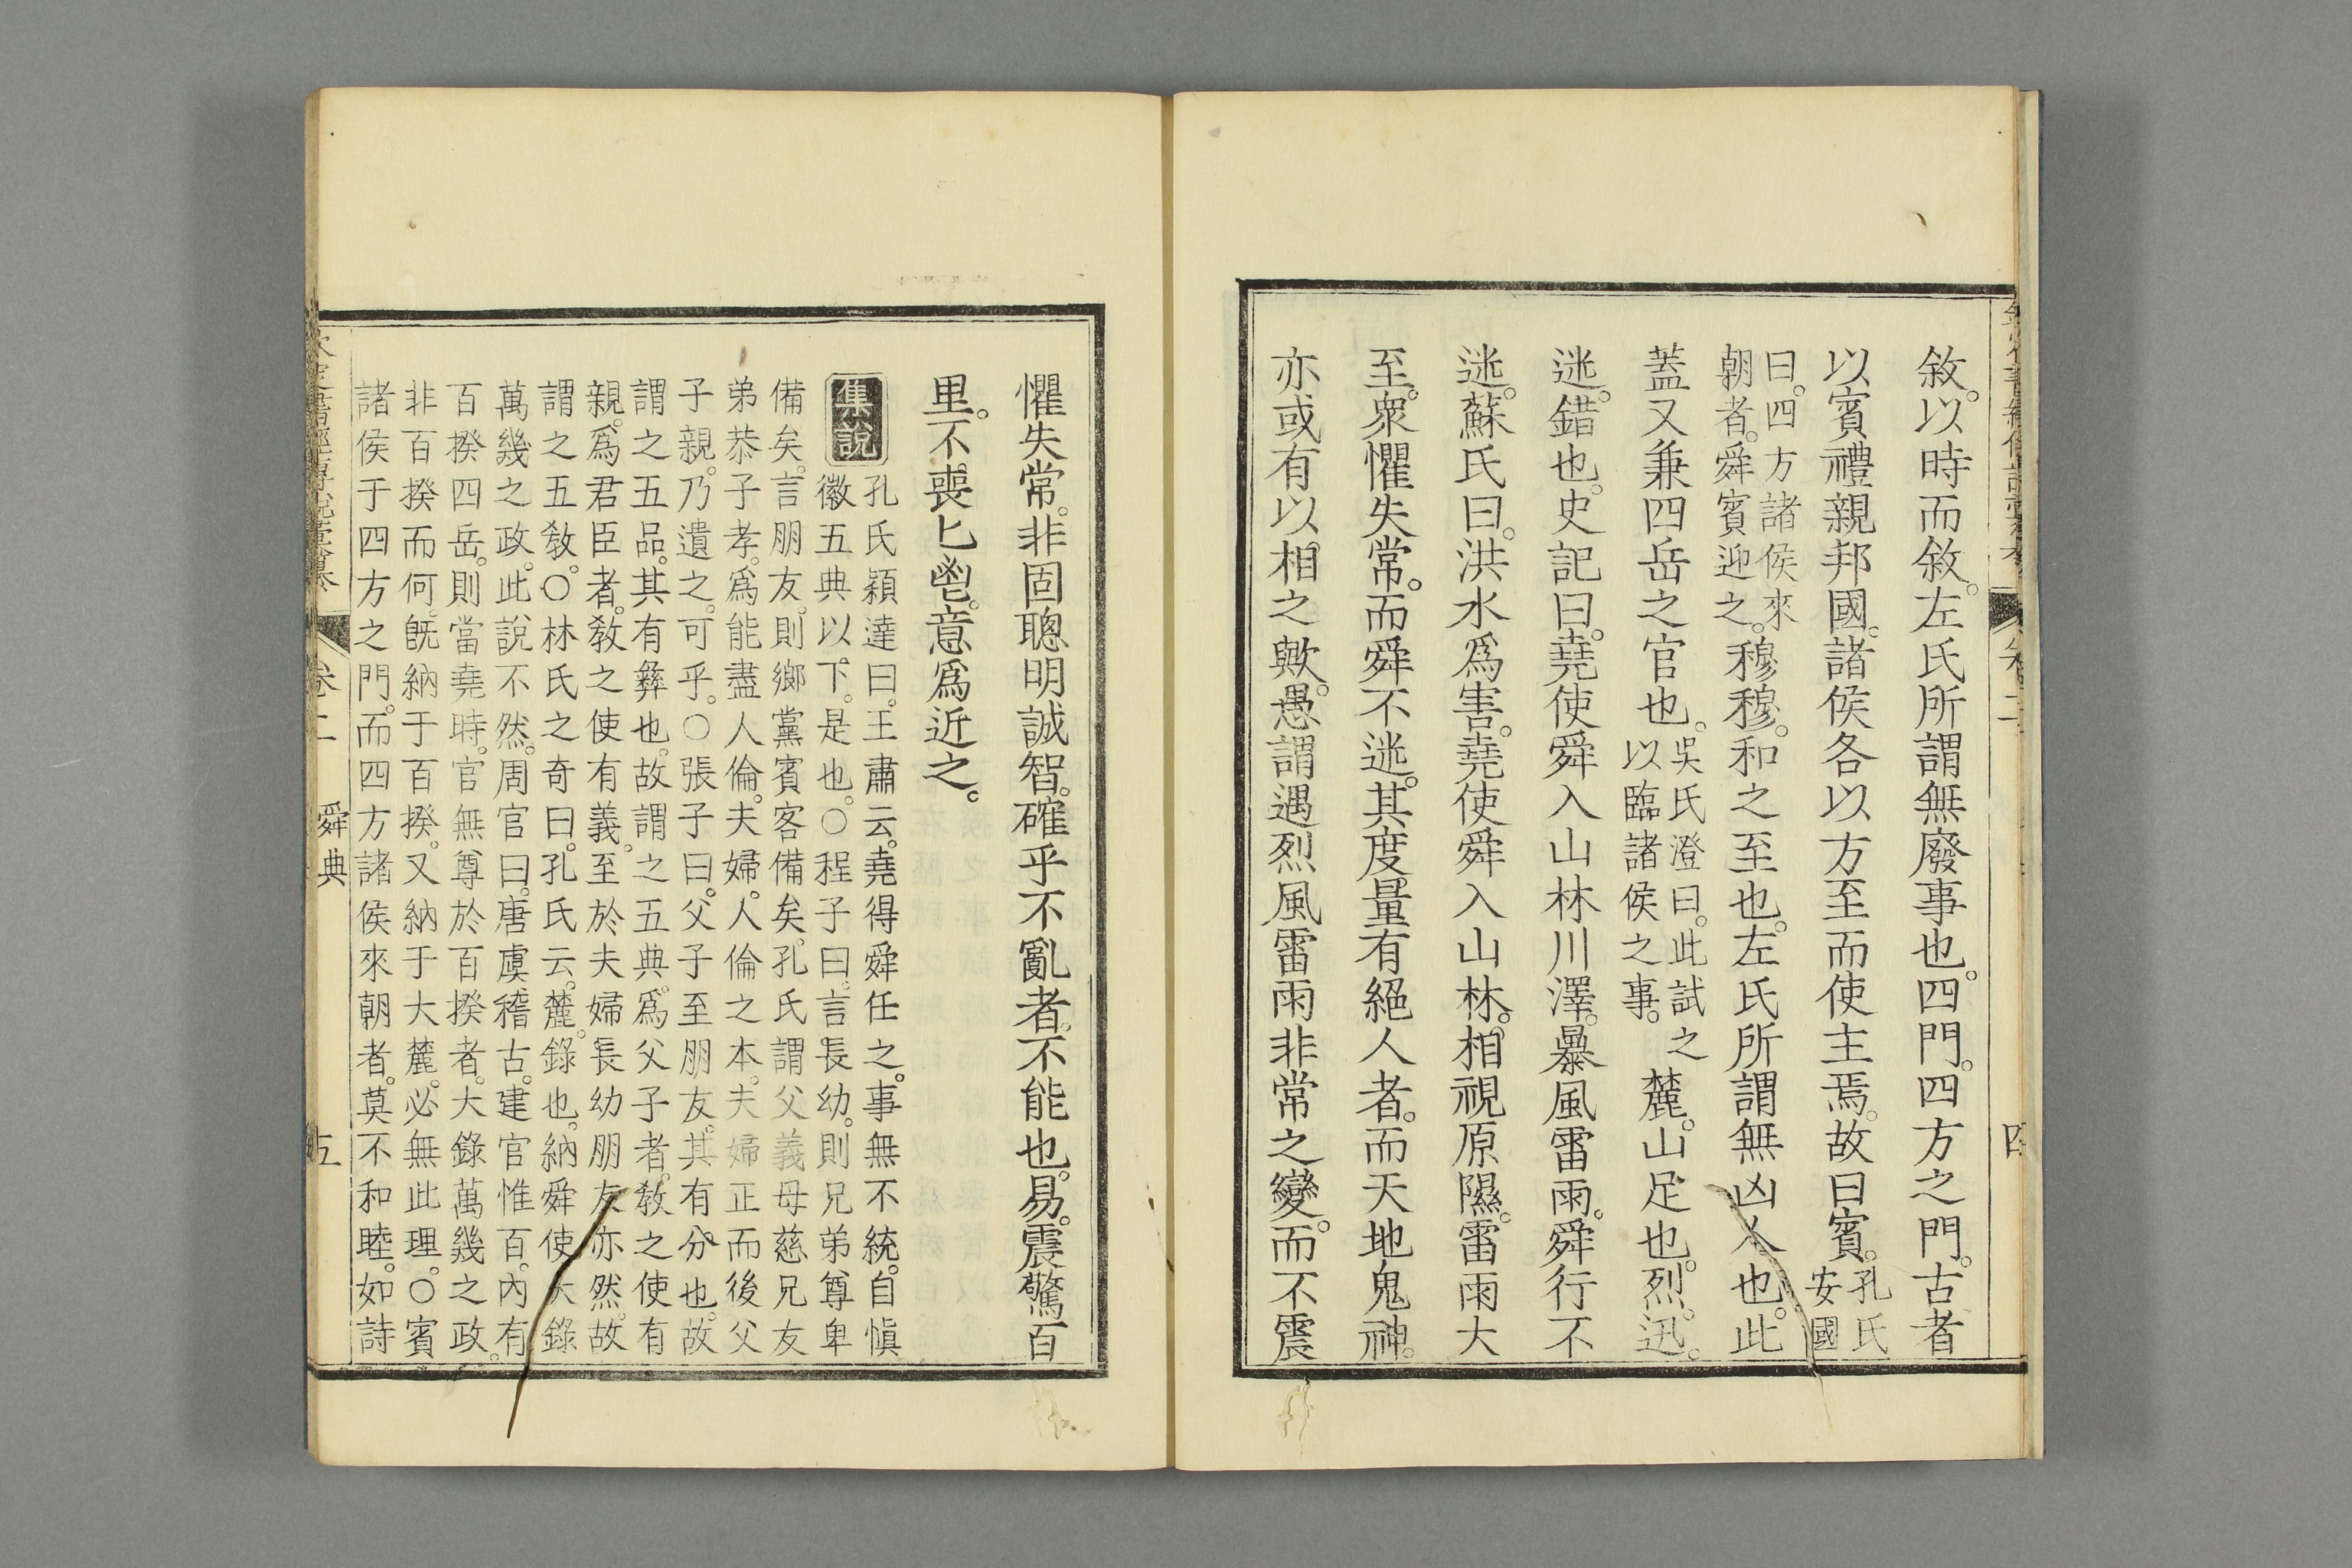 敘。以時而敘。左氏所謂無廢事也。四門。四方之門。古者
以賓禮親邦國。諸侯各以方至而使主焉。故曰賓。孔氏安國
曰。四方諸侯來朝者。舜賓迎之。穆穆。和之至也。左氏所謂無凶人也。此
蓋又兼四岳之官也。吳氏澄曰。此試之以臨諸侯之事。麓。山足也。烈。迅。
迷。錯也。史記曰。堯使舜入山林川澤。暴風雷雨。舜行不
迷。蘇氏曰。洪水為害。堯使舜入山林。相視原隰。雷雨大
至。衆懼失常。而舜不迷。其度量有絕人者。而天地鬼神。
亦或有以相之歟。愚謂遇烈風雷雨非常之變。而不震
懼失常。非固聰明誠智。確乎不亂者。不能也。易。震驚百
里。不喪匕鬯。意為近之。
集說
孔氏穎達曰。王肅云。堯得舜任之。事無不統。自愼
徽五典以下。是也。○程子曰。言長幼。則兄弟尊卑
備矣。言朋友。則鄉黨賓客備矣。孔氏謂父義母慈兄友
弟恭子孝。為能盡人倫。夫婦。人倫之本。夫婦正而後父
子親。乃遺之。可乎。○張子曰。父子至朋友。其有分也。故
謂之五品。其有彝也。故謂之五典。為父子者。敎之使有
親。為君臣者。敎之使有義。至於夫婦長幼朋友亦然。故
謂之五敎。○林氏之奇曰。孔氏云。麓。錄也。納舜使大錄
萬幾之政。此說不然。周官曰。唐虞稽古。建官惟百。內有
百揆四岳。則當堯時。官無尊於百揆者。大錄萬幾之政。
非百揆而何。旣納于百揆。又納于大麓。必無此理。○賓
諸侯于四方之門。而四方諸侯來朝者。莫不和睦。如詩
卷二 舜典 五